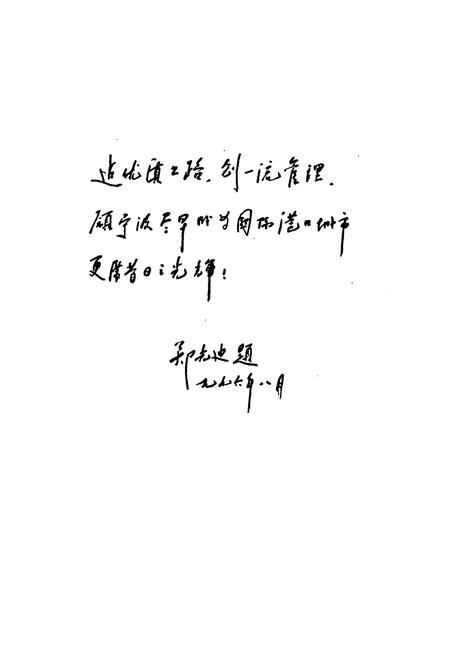 造优质公路,创一流管理,
愿宁波尽早成为国际港口城市
更胜昔日之光辉!
郑光迪题
九九六年八月